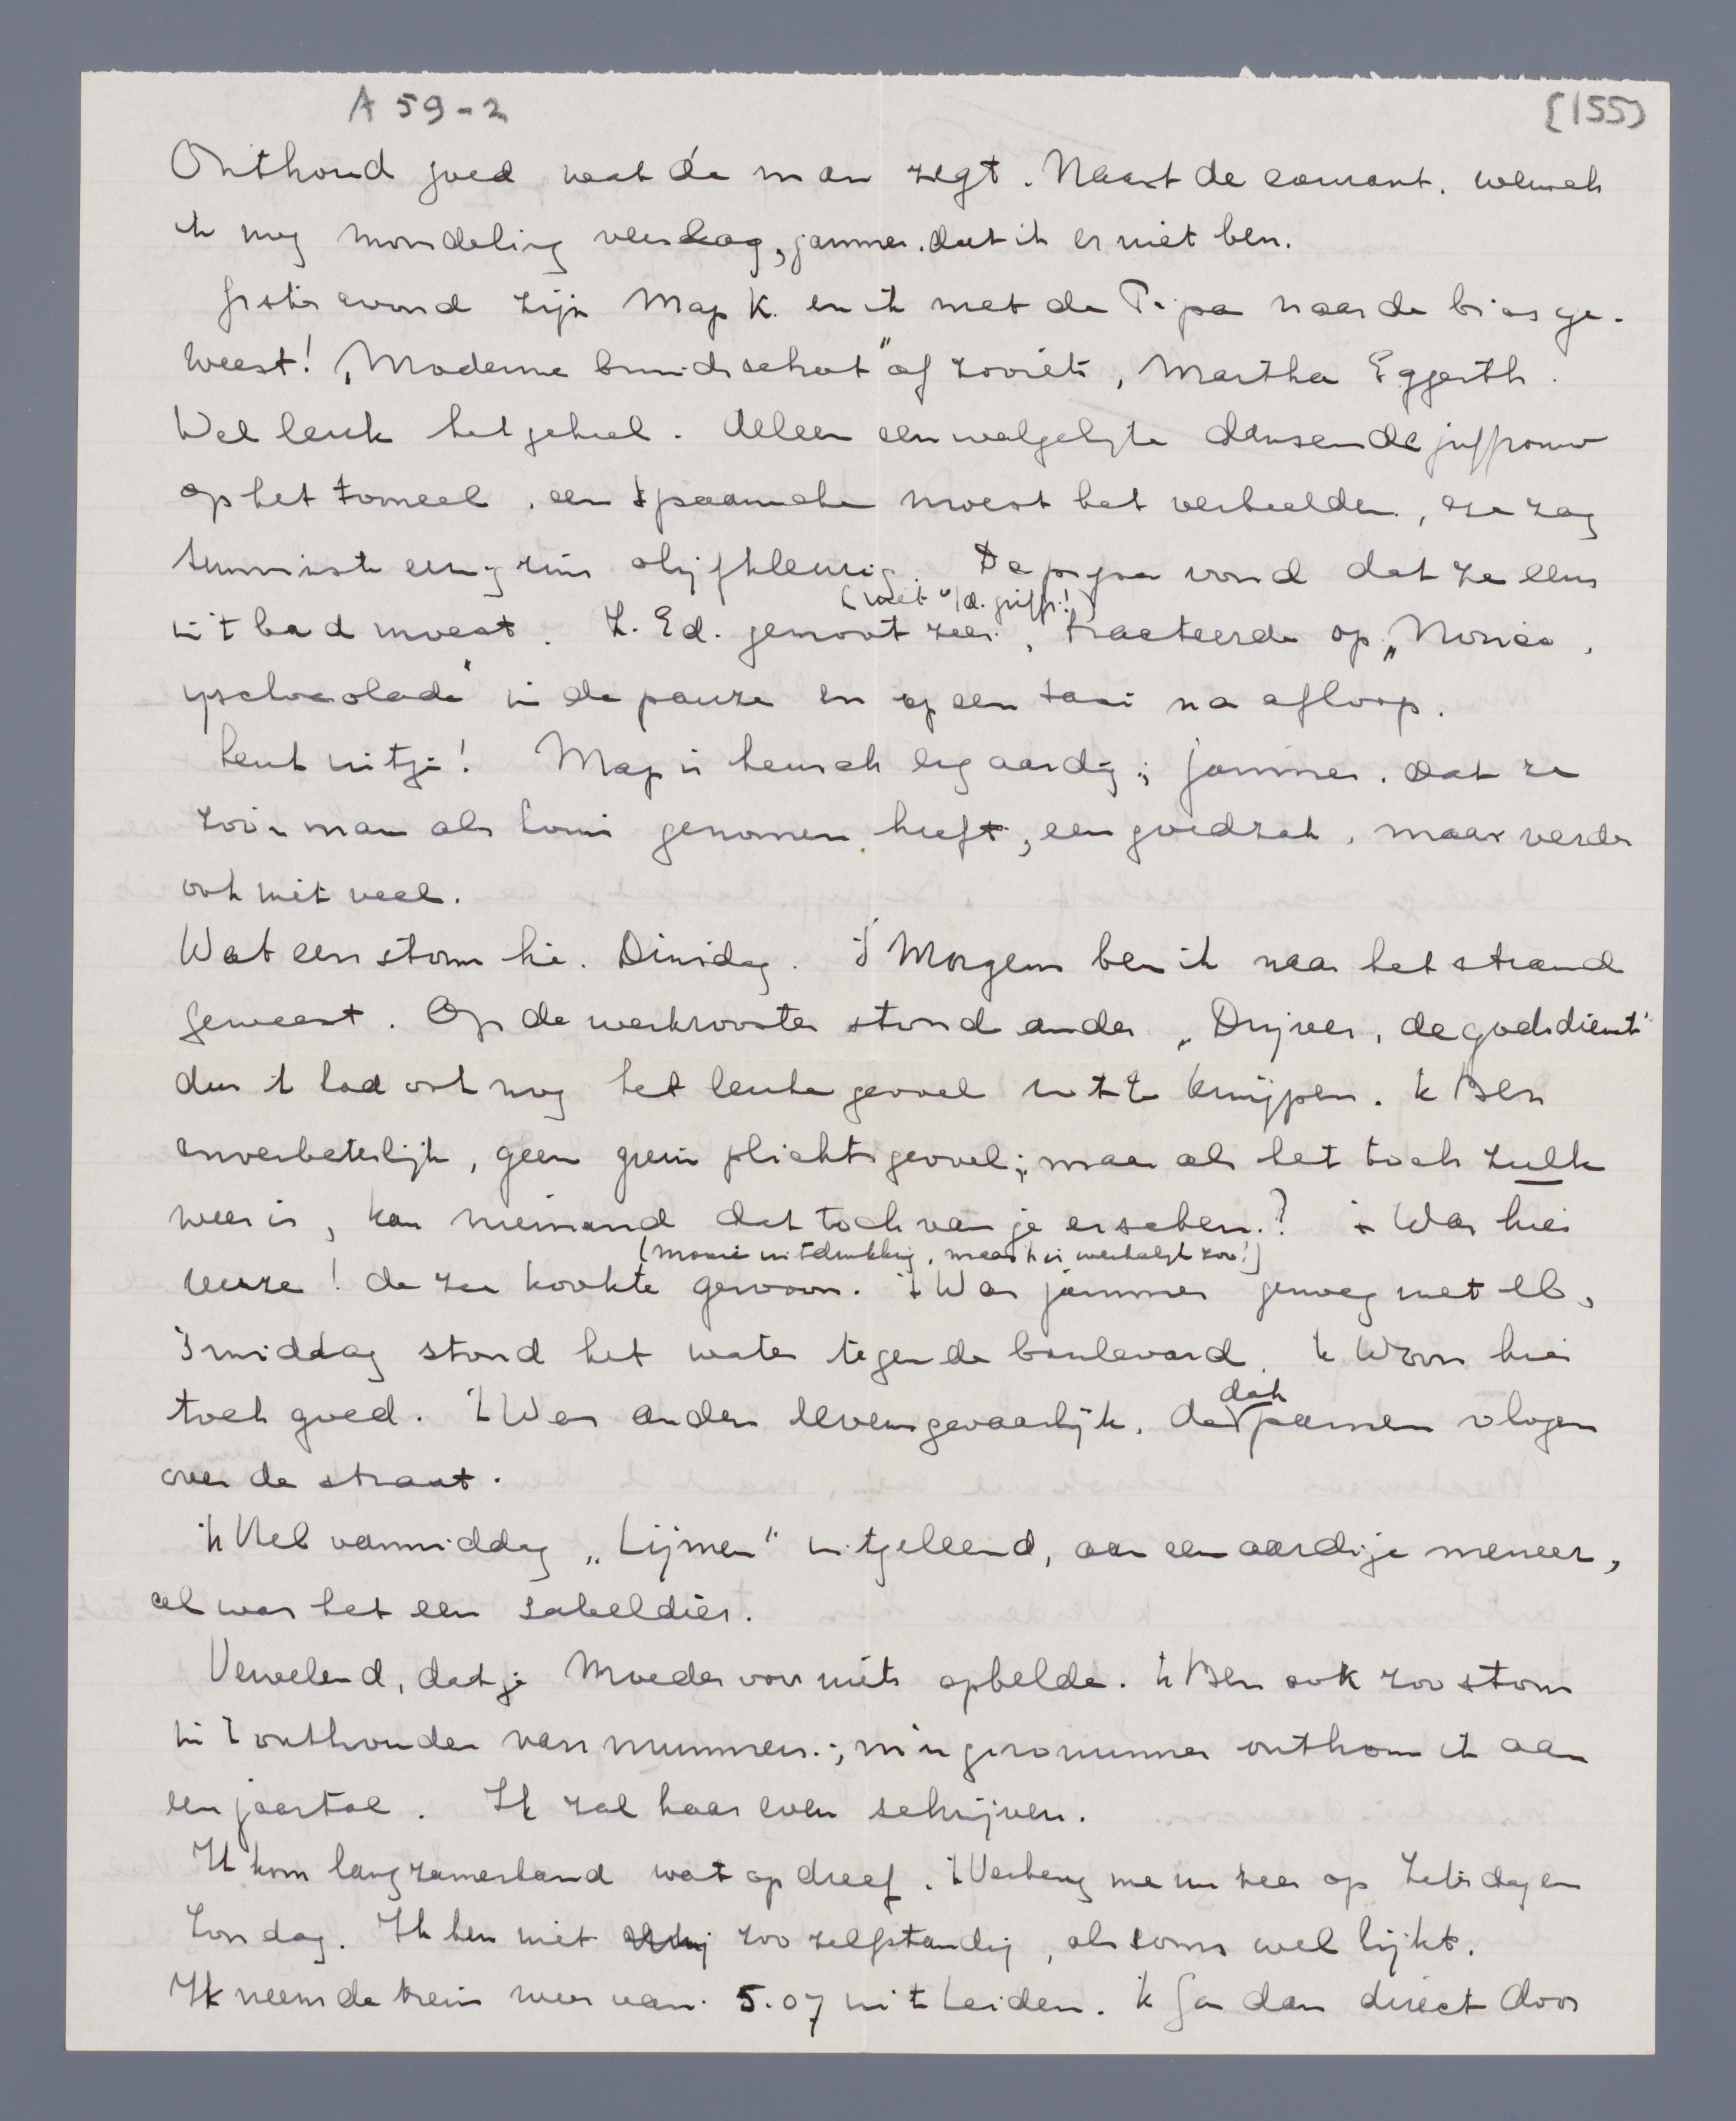 A 59-2
(155)
Onthoud goed wat de man zegt. Naast de courant, wensch
ik nog mondeling verslag, jammer, dat ik er niet ben.
Gisteravond zijn Map K. en ik met de Pipa naar de bios ge-
weest! „Moderne bruidschat" of zooiets, Martha Eggerth.
Wel leuk het geheel. Alleen een walgelijke dansende juffrouw
op het tooneel, een Spaansche moest het verbeelden, ze zag
tenminste eenigzins olijfkleurig. De pipa vond dat ze eens
(niet v/d. griff.!)
in 't bad moest. Z. Ed. genoot zeer, tracteerde op „Nonica
yschocolade" in de pauze en op een taxi na afloop.
Leuk uitje! Map is heusch erg aardig; jammer, dat ze
zoo'n man als Loui genomen heeft, een goedzak, maar verder
ook niet veel.
Wat een storm hè. Dinsdag. 's Morgens ben ik naar het strand
geweest. Op de werkrooster stond onder „Drijver, de godsdienst"
dus ik had ook nog het leuke gevoel uit te knijpen. 'k Ben
onverbeterlijk, geen grein plichtsgevoel; maar als het toch zulk
weer is, kan niemand dat toch van je eischen? 't Was hier
(mooie uitdrukking, maar 't is werkelijk zoo!)
reuze! de zee kookte gewoon. 't Was jammer genoeg met eb,
's middag stond het water tegen de boulevard. 'k Woon hier
toch goed. 't Was anders levensgevaarlijk, de
dak
pannen vlogen
over de straat.
'k Heb vanmiddag „Lijmen" uitgeleend, aan een aardige meneer,
al was het een sabeldier.
Vervelend, dat je Moeder voor niets opbelde. 'k Ben ook zoo stom
in 't onthouden van nummers; m'n gironummer onthou ik aan
een jaartal. Ik zal haar even schrijven.
Ik kom langzamerhand wat op dreef. 'k Verheug me nu zeer op Zaterdag en
Zondag. Ik ben niet zoo zelfstandig, als soms wel lijkt.
Ik neem de trein weer van 5.07 uit Leiden. 'k Ga dan direct door